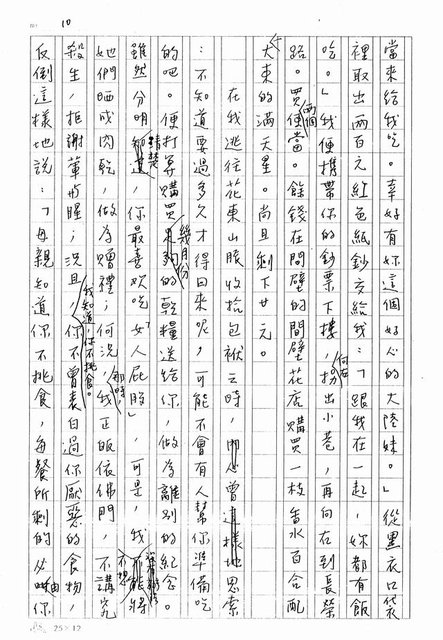 10
當來給我吃。幸好有妳這個好心的大陸妹。」從黑衣口袋
裡取出兩百元紅色紙鈔交給我:「跟我在一起,妳都有飯
吃。」我便攜帶你的鈔票下樓,拐出小巷,再向在到長榮
何在
路。買便當。餘錢在間壁的間壁花店購買一枝香水百合配
兩個
大束的滿天星。尚且剩下廿元。
在我逃往花東山脈收拾包袱之時,曾思索
:不知道要過多久才得回來呢,可能不會有人幫你準備吃
的吧。便打算購買的乾糧送給你,做為離別的紀念。
幾月份
雖然分明,你最喜歡吃「女人屁股」,可是,我
清楚
不想
她們晒成肉乾,做為贈禮;何況,我正皈依佛門,不講究
那時,
殺生,拒謝葷與腥;況且,你不曾表白過你厭惡的食物,
我知道,你不挑食。
反倒這樣地說:「母親知道你不挑食,每餐所剩的必由你
25×12